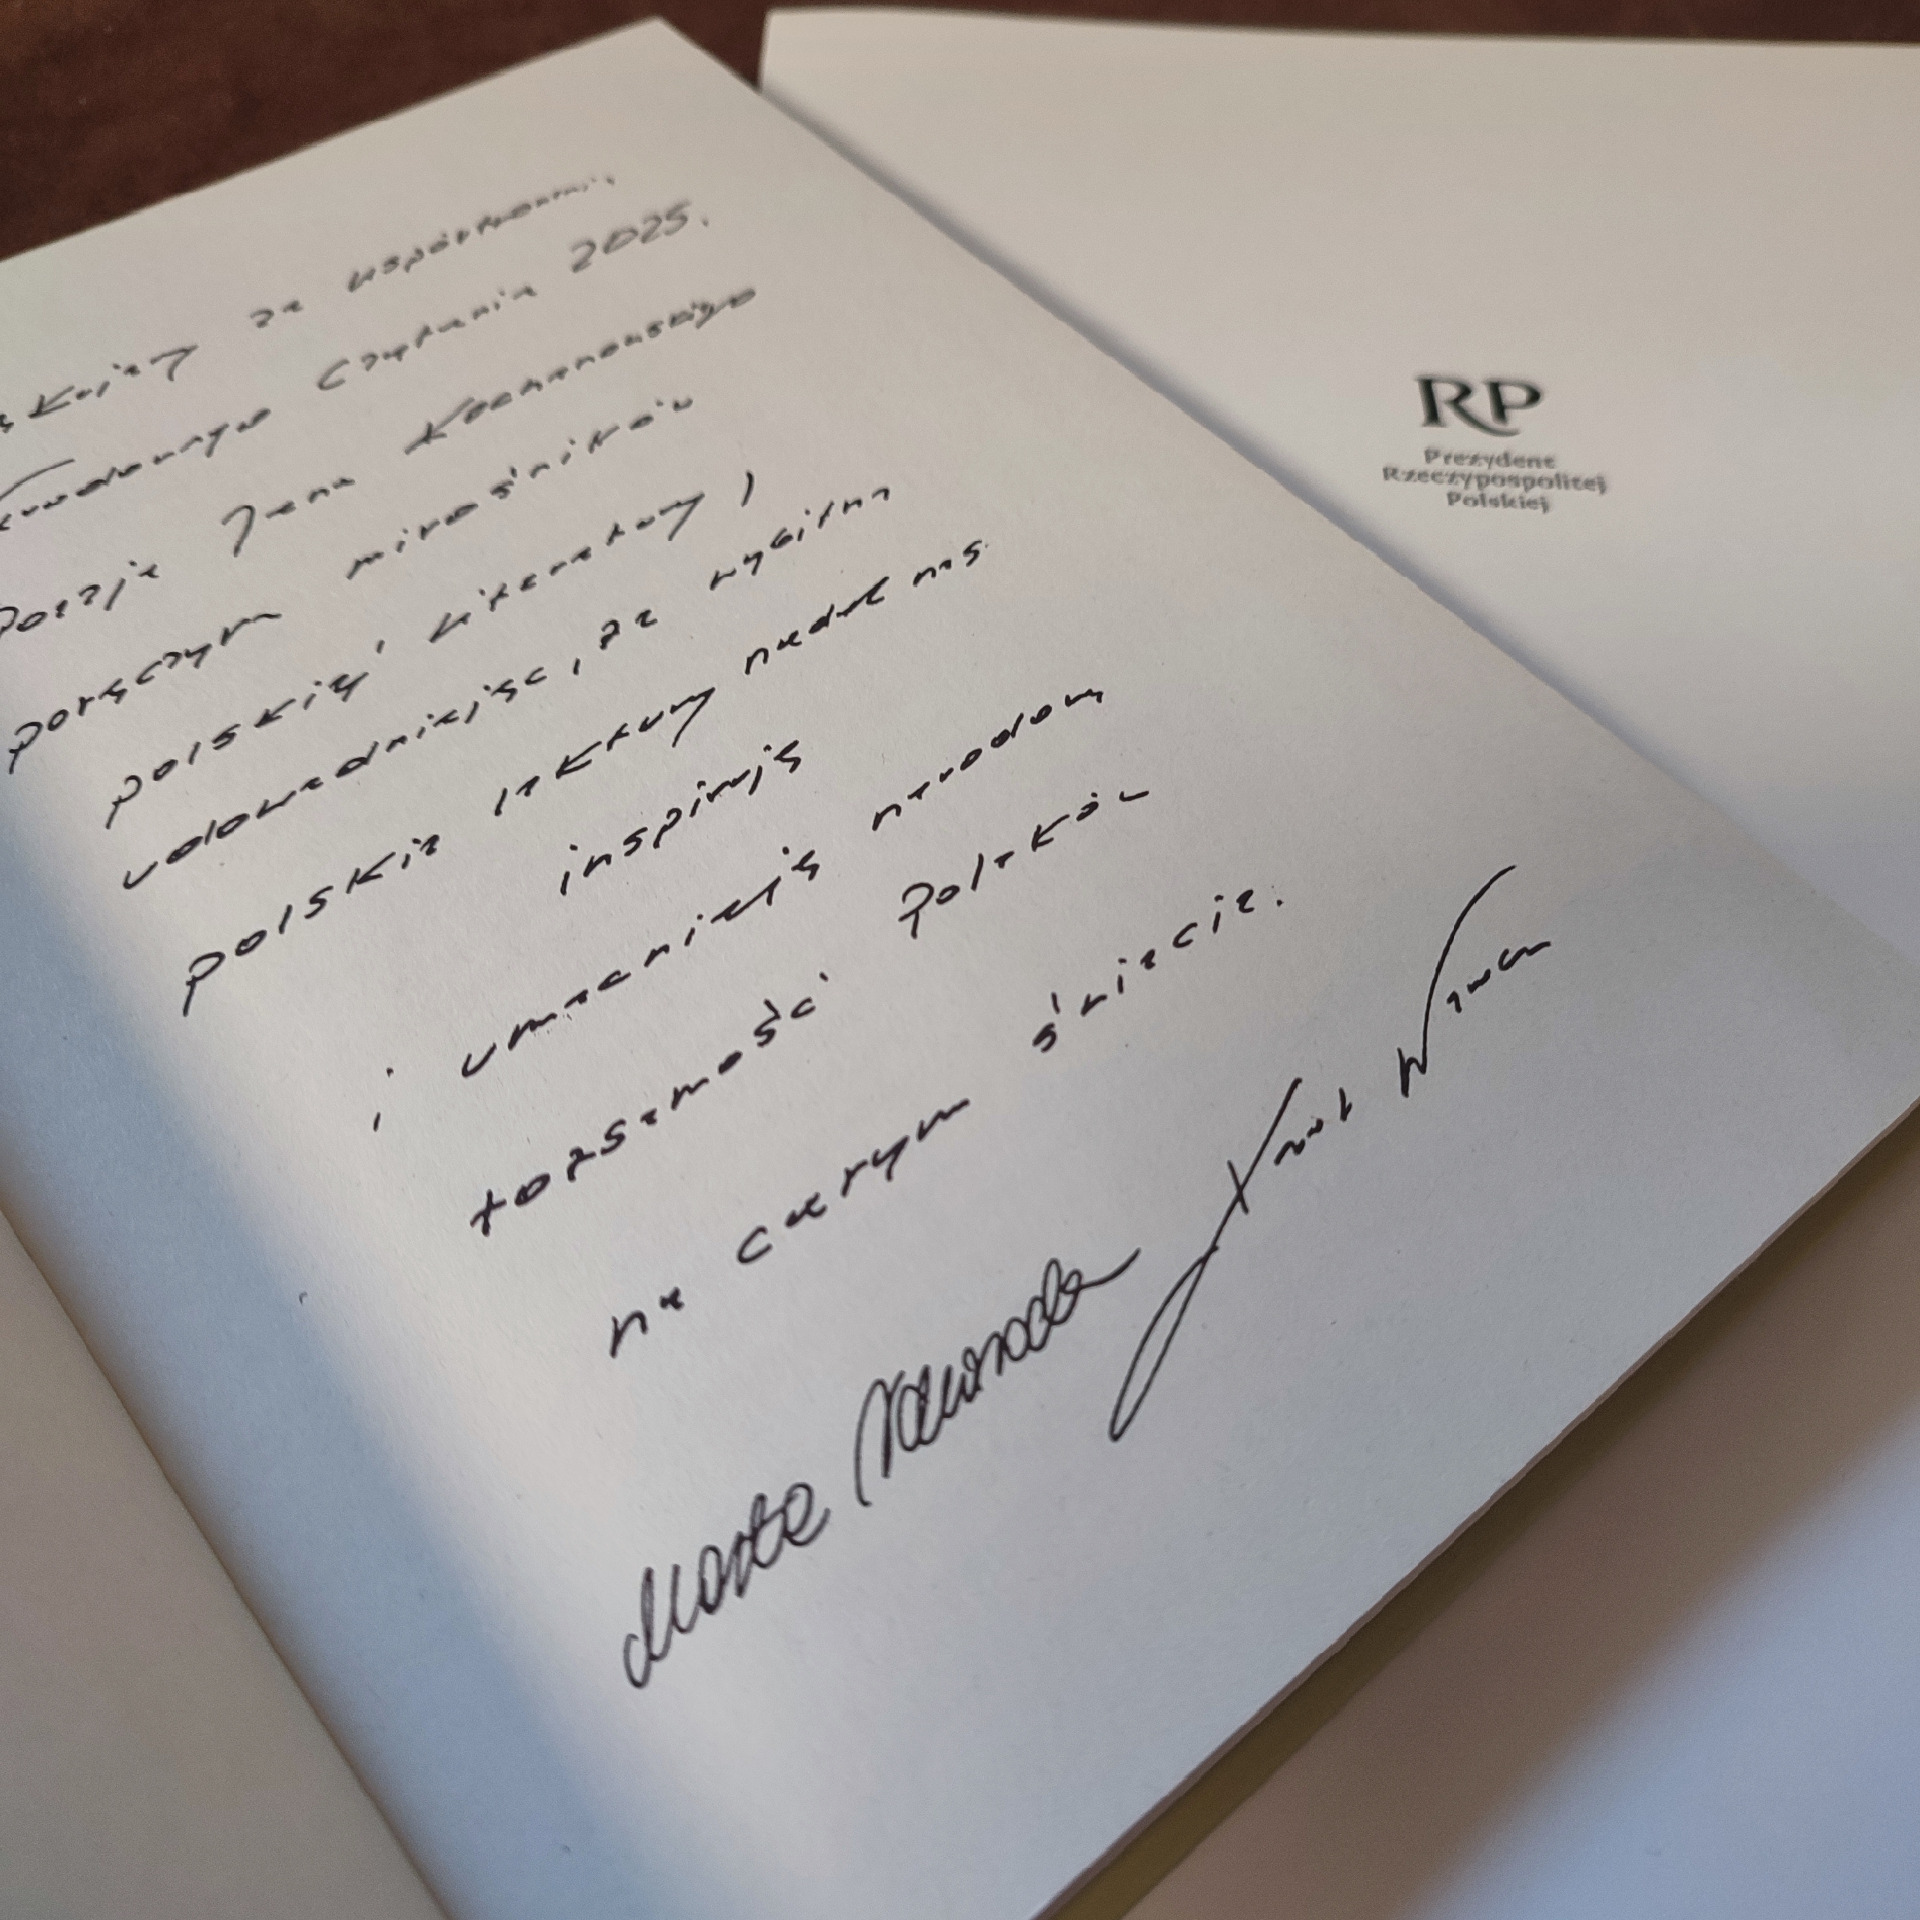 za współtworzenie
Narodowego Czytania 2025.
Poezję Jana Kochanowskiego
poręczym miłośników
polskiej literatury,
udowadniając, że wybitne
polskie lektury nadal nas
inspirują
i umacniają narodową
tożsamość Polaków
na całym świecie.
Marta Nawrocka
Karol Nawrocki
RP
Prezydent
Rzeczypospolitej
Polskiej